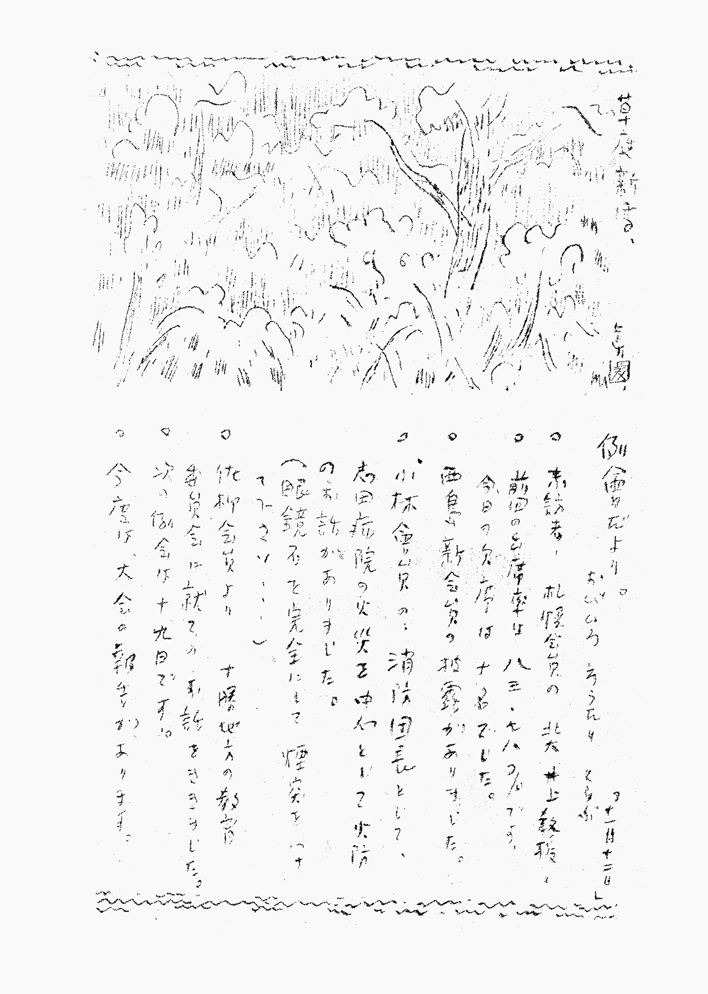 例會だより。
おびひろ ろうたり くらぶ
「十一月十二日」
。来訪者、札幌会員の 北大 井上教授、
。前回の出席率は 八三・七八%です、
今日の欠席は 十名でした。
。西島 新会員の披露がありました。
。小林會員の、消防団長として、
志田病院の火災を中心として火防
のお話がありました。
(眼鏡石を完全にして 煙突をつけ
て下さい…)
。佐柳会員より 十勝地方の教育
委員会に就てのお話をききました。
。次の例会は十九日です。
。今度は、大会の報告があります。